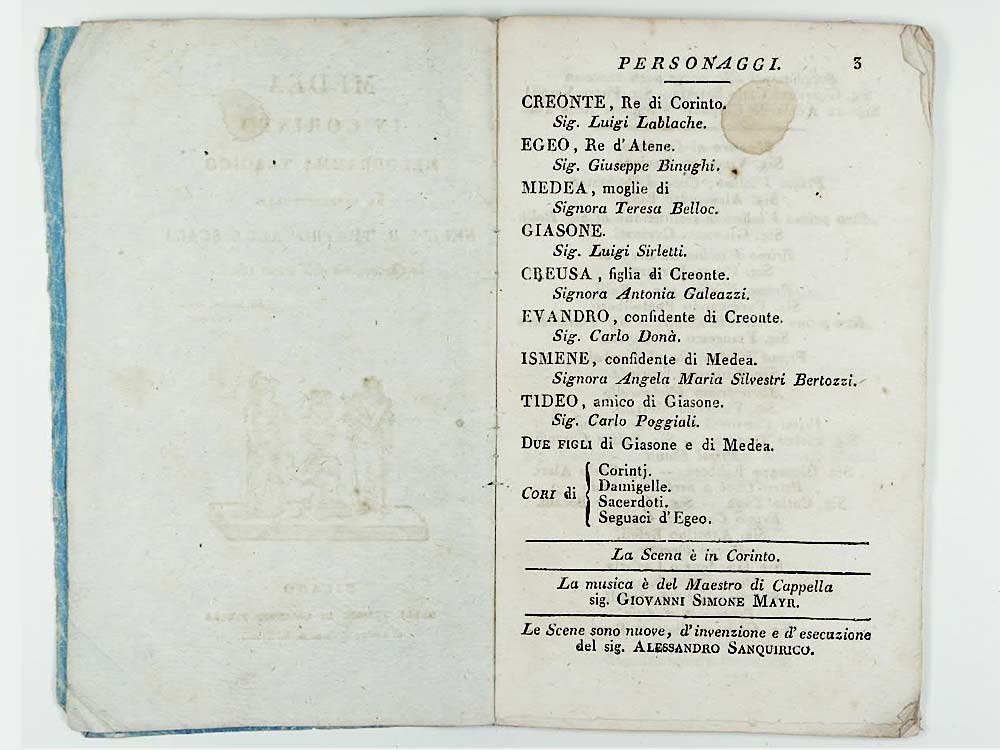 PERSONAGGI. 3
CREONTE, Re di Corinto.
Sig. Luigi Lablache.
EGEO, Re d'Atene.
Sig. Giuseppe Binaghi.
MEDEA, moglie di
Signora Teresa Belloc.
GIASONE.
Sig. Luigi Sirletti.
CREUSA, figlia di Creonte.
Signora Antonia Galeazzi.
EVANDRO, confidente di Creonte.
Sig. Carlo Donà.
ISMENE, confidente di Medea.
Signora Angela Maria Silvestri Bertozzi.
TIDEO, amico di Giasone.
Sig. Carlo Poggiali.
DUE FIGLI di Giasone e di Medea.
CORI di
Corintj.
Damigelle.
Sacerdoti.
Seguaci d'Egeo.
La Scena è in Corinto.
La musica è del Maestro di Cappella
sig. GIOVANNI SIMONE MAYR.
Le Scene sono nuove, d'invenzione e d'esecuzione
del sig. ALESSANDRO SANQUIRICO.